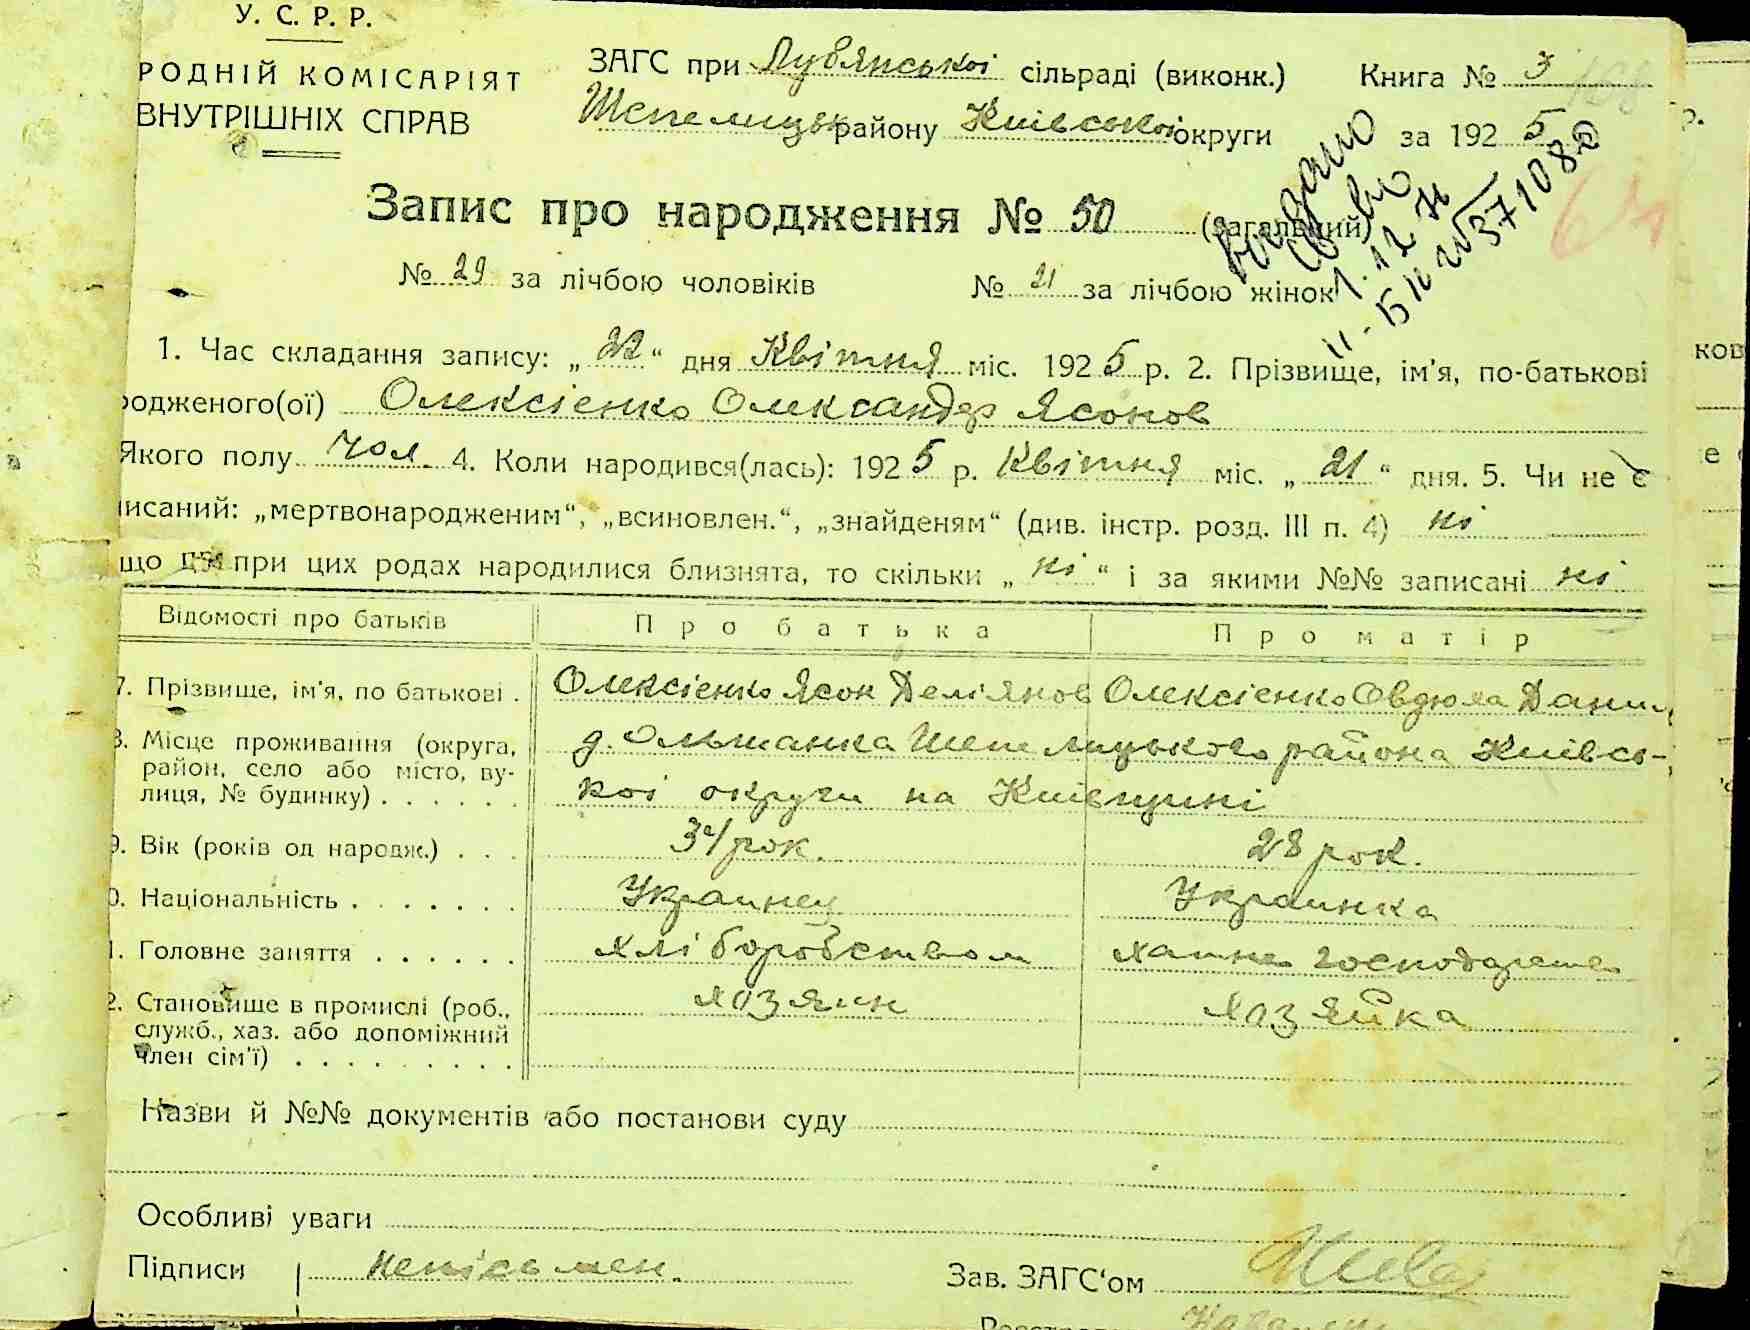 У. С. Р. Р.
РОДНІЙ КОМІСАРІЯТ
ВНУТРІШНІХ СПРАВ
ЗАГС при Лубянської сільраді (виконк.) Книга № 3
Шепелицьк району Київської округи за 1925
Запис про народження № 50 (загальний)
№ 29 за лічбою чоловіків № 21 за лічбою жінок
Видано
1. Час складання запису: „22“ дня Квітня міс. 1925 р. 2. Прізвище, ім'я, по-батькові
родженого(ої) Олексієнко Олександр Ясонов
Якого полу чол. 4. Коли народився(лась): 1925 р. Квітня міс. „21“ дня. 5. Чи не є
писаний: „мертвонародженим“, „всиновлен.“, „знайденям“ (див. інстр. розд. III п. 4) ні
що при цих родах народилися близнята, то скільки „ні“ і за якими №№ записані ні
Відомості про батьків Про батька Про матір
7. Прізвище, ім'я, по батькові . Олексієнко Ясон Демʼянов Олексієнко Овдюха Данил
8. Місце проживання (округа, район, село або місто, вулиця, № будинку) . . . . . . д. Ольшанка Шепелицького района Київсь-
кої округи на Київщині
9. Вік (років од народж.) . . . 34 рок. 28 рок.
0. Національність . . . . . . . Украинец Украинка
1. Головне заняття . . . . . . хліборобством хатнє господарство
2. Становище в промислі (роб., служб., хаз. або допоміжний член сім'ї) . . . . . . . . . хозяин хозяйка
Назви й №№ документів або постанови суду
Особливі уваги
Підписи неписьмен. Зав. ЗАГС'ом